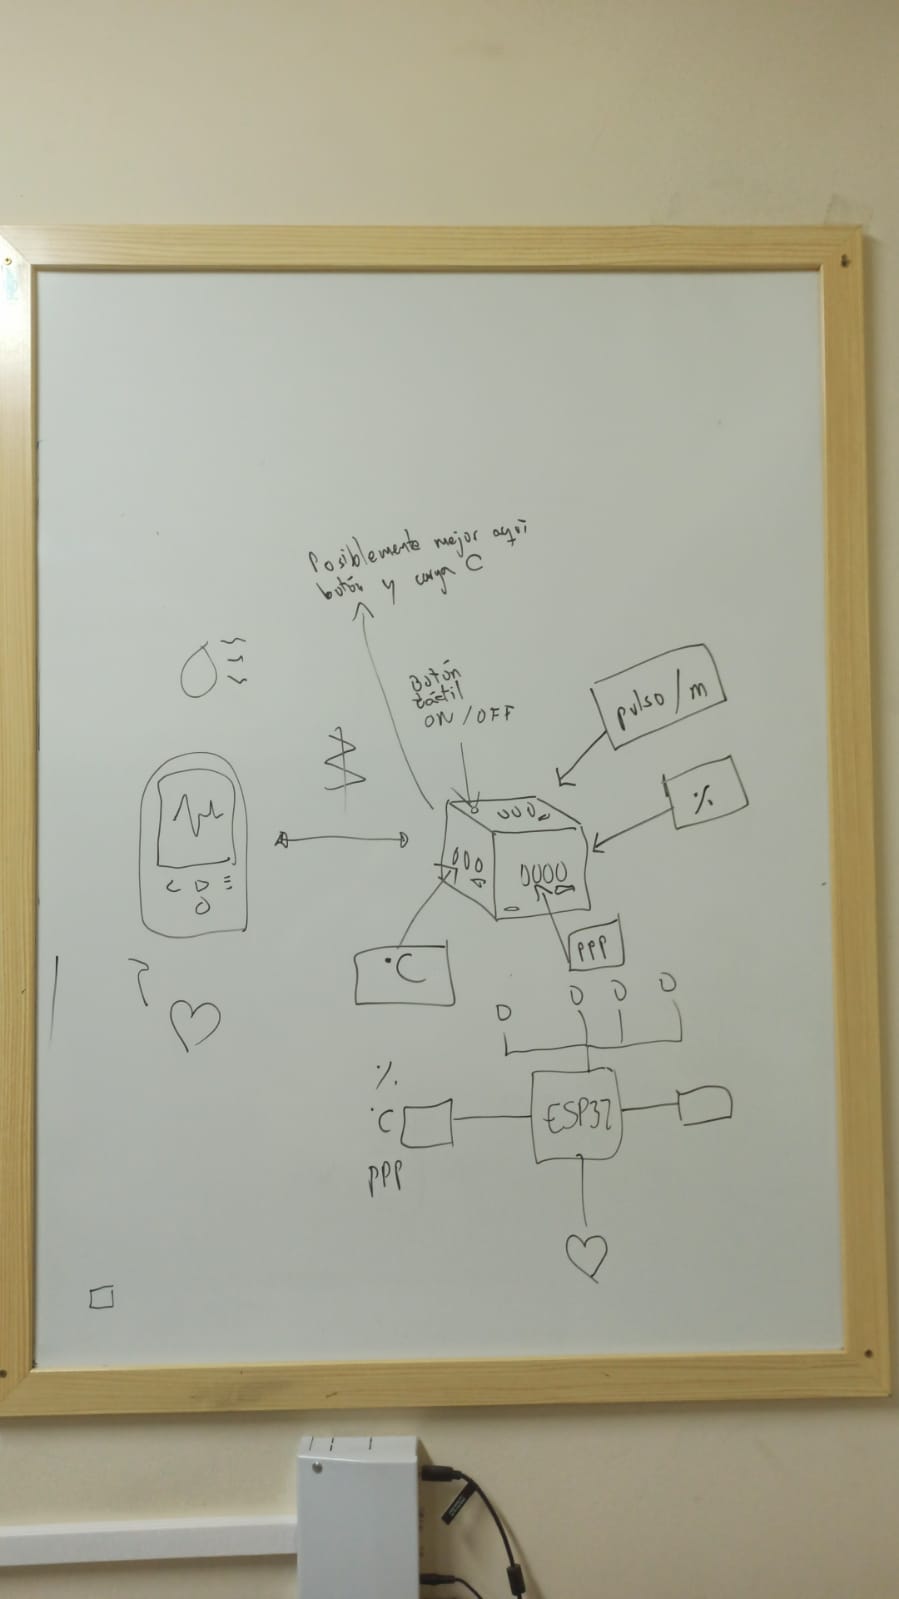 Posiblemente mejor aquí
botón y carga C
Botón
táctil
ON/OFF
pulso/m
%
°C
PPP
%
°C
PPP
ESP32